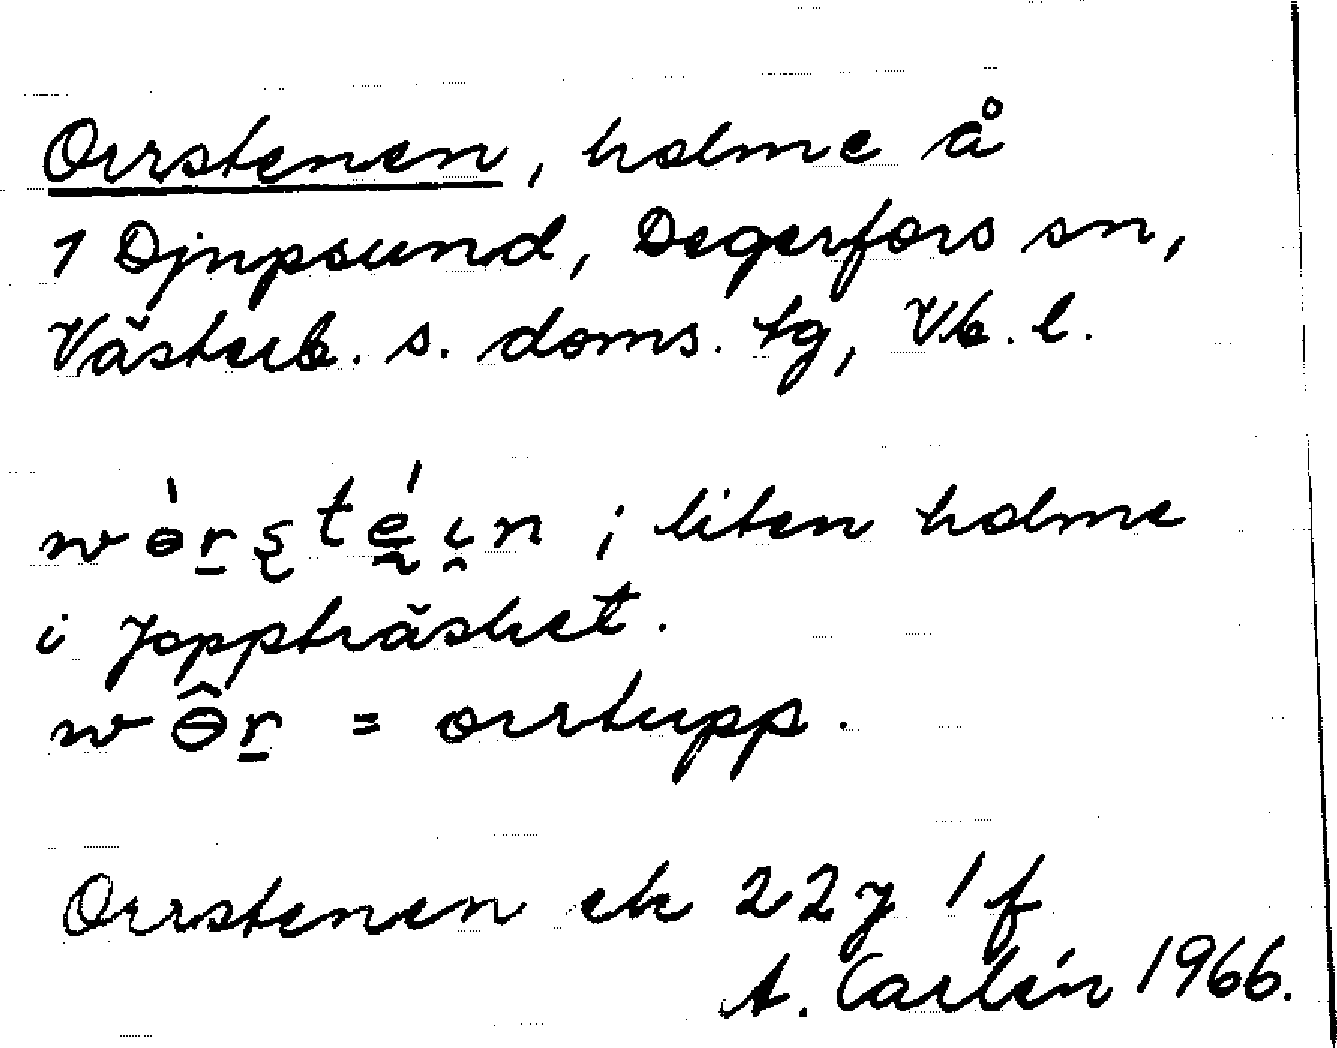 Orrstenen, holme å
1 Djupsund, Degerfors sn,
Västerb. s. doms. tg, Vb. l.
wɵ́r̠şté̱ı̯n ; liten holme
i Joppträsket.
wɵ̂r̠ = orrtupp.
Orrstenen ek 22 J 1 f
A. Carlén 1966.